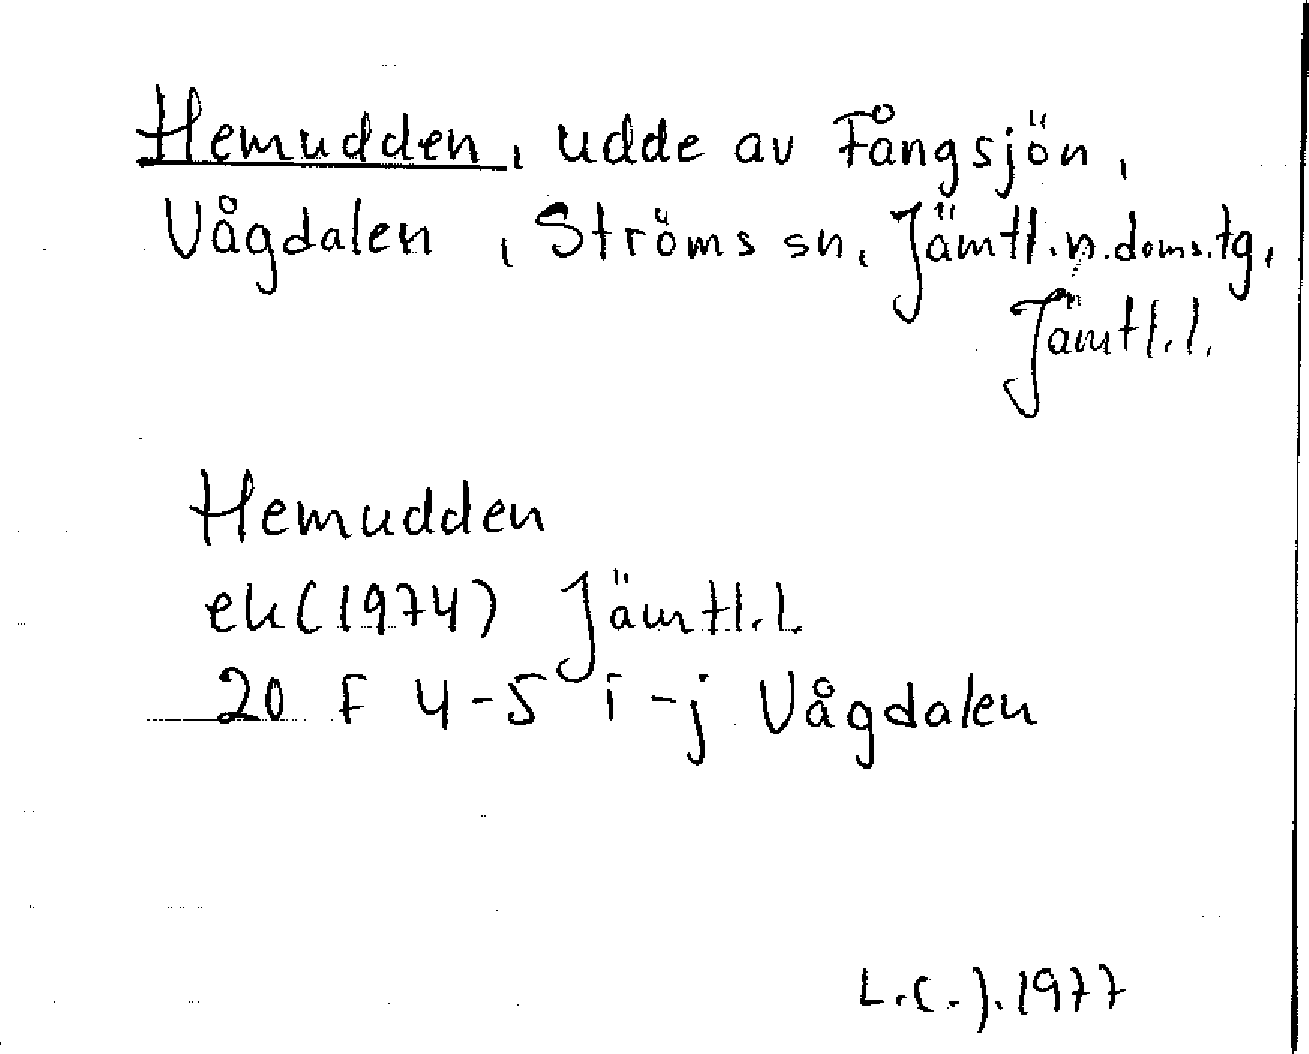 Hemudden, udde av Fångsjön,
Vågdalen, Ströms sn, Jämtl.n.doms.tg,
Jämtl.l.
Hemudden
ek(1974) Jämtl.l.
20 F 4-5 i-j Vågdalen
L.C.J. 1977